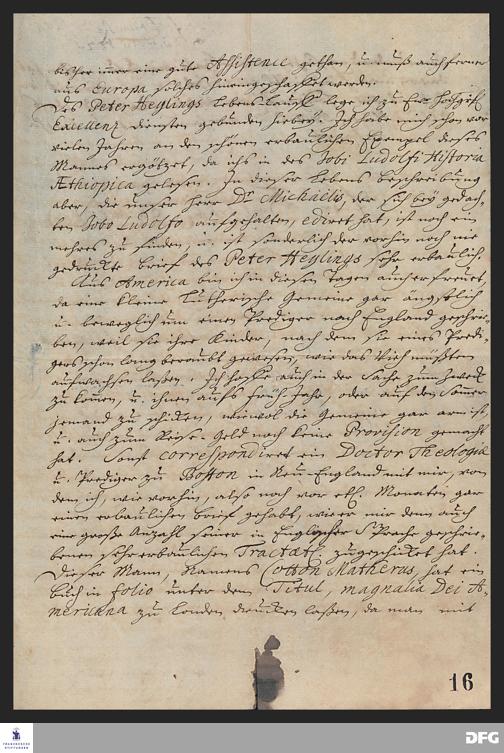 bißher immer eine gute Assistence gethan, u. muß auch ferner
aus Europa solches hineingeschaffet werden.
Des Peter Heylings Lebens-Lauff lege ich zu Ew. Hochgräfl.
Excellenz diensten gebunden hiebey. Ich habe mich schon vor
vielen Jahren an dem schönen erbaulichen Exempel dieses
Mannes ergötzet, da ichs in des Jobi Ludolfi Historia
Æthiopica gelesen. In dieser Lebens Beschreibung
aber, die unser Herr Dr. Michaelis, der sich bey gedach-
ten Jobo Ludolfo aufgehalten, ediret hat, ist noch ein
mehres zu finden, u. ist sonderlich der vorhin noch nie
gedruckte brief des Peter Heylings sehr erbaulich.
Aus America bin ich in diesen Tagen auch erfreuet,
da eine kleine Lutherische Gemeine gar ängstlich
u. beweglich um einen Prediger nach England geschrie-
ben, weil sie ihre Kinder, nach dem sie eines Predi-
gers schon lang beraubt gewesen, wie das Vieh müßten
aufwachsen laßen. Ich hoffe auch in der Sache zum zweck
zu kommen, u. ihnen aufs früh Jahr, oder auff den Sommer
jemand zu schicken, wiewol die Gemeine gar arm ist,
u. auch zum Reise-Geld noch keine Provision gemacht
hat. Sonst correspondiret ein Doctor Theologiæ
u. Prediger zu Boston in Neu-England mit mir, von
dem ich, wie vorhin, also noch vor etl. Monaten gar
einen erbaulichen brief gehabt, wie er mir denn auch
eine große Anzahl seiner in Englischer Sprache geschrie-
benen sehr erbaulichen Tractätl. zugeschicket hat.
Dieser Mann, Namens Cotton Matherus, hat ein
buch in folio unter dem Titul, magnalia Dei A-
mericana zu London drucken laßen, da man mit
16
FRANCKESCHE
STIFTUNGEN
DFG